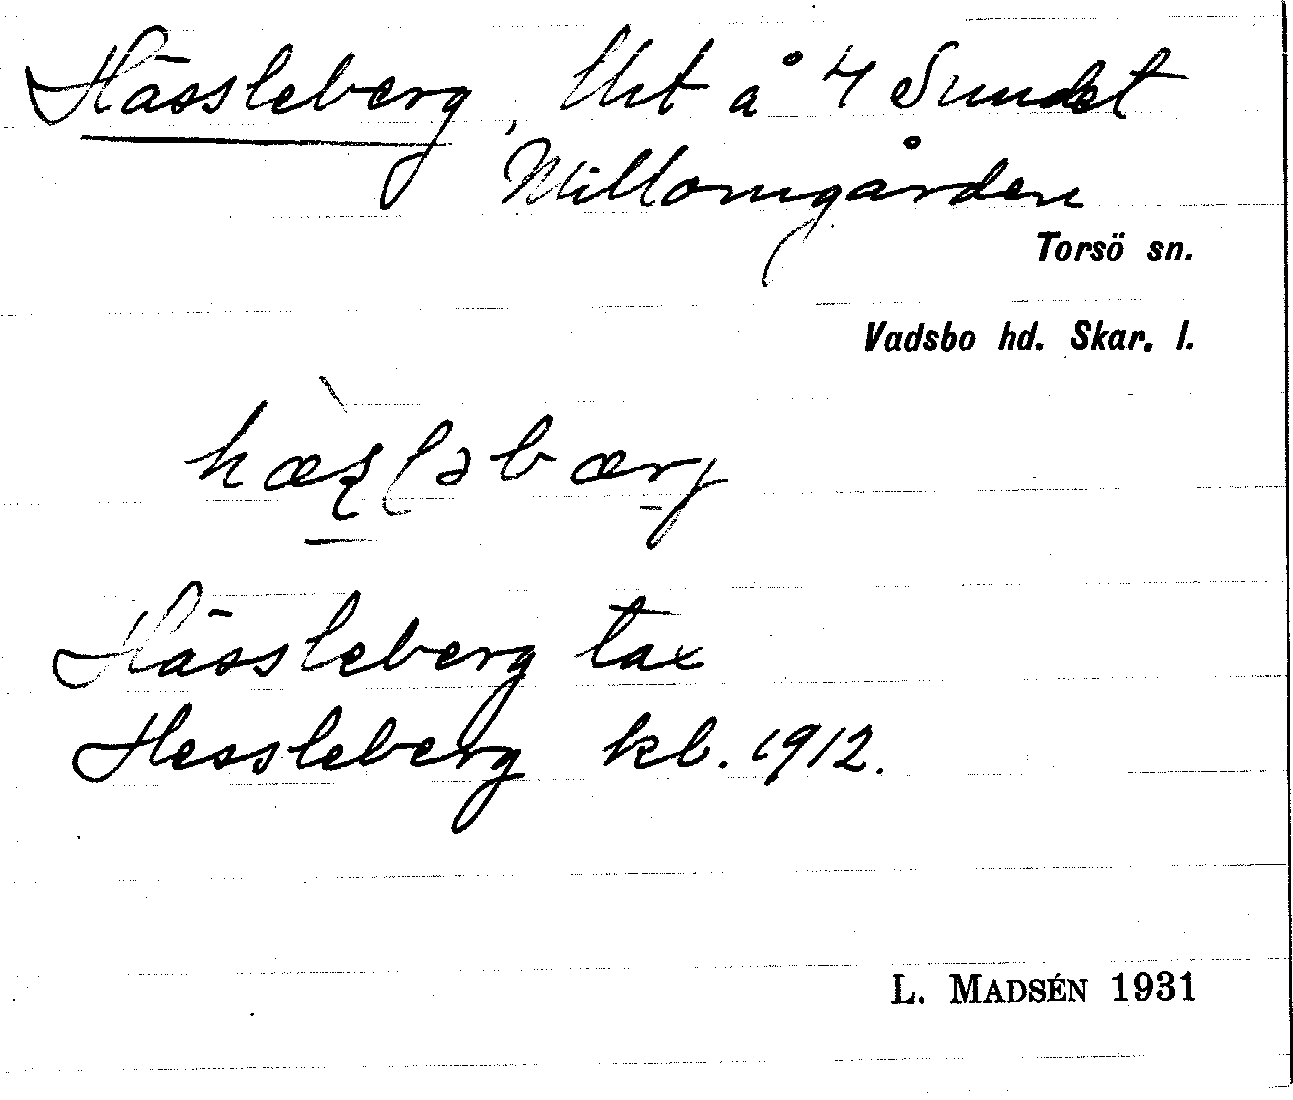 Hässleberg, Urt å 4 Sundet
Millomgården
Torsö sn.
Vadsbo hd. Skar. l.
Hässleberg tax
Hessleberg kb. 1912.
L. MADSÉN 1931